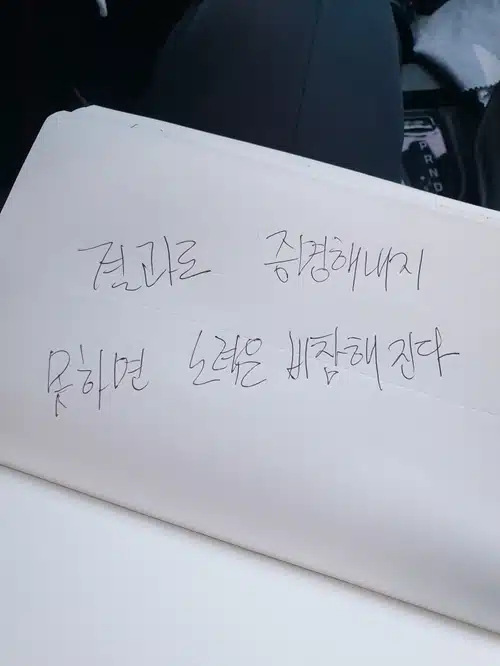 결과로 증명해내지
못하면 노력은 비참해진다
P
R
N
D